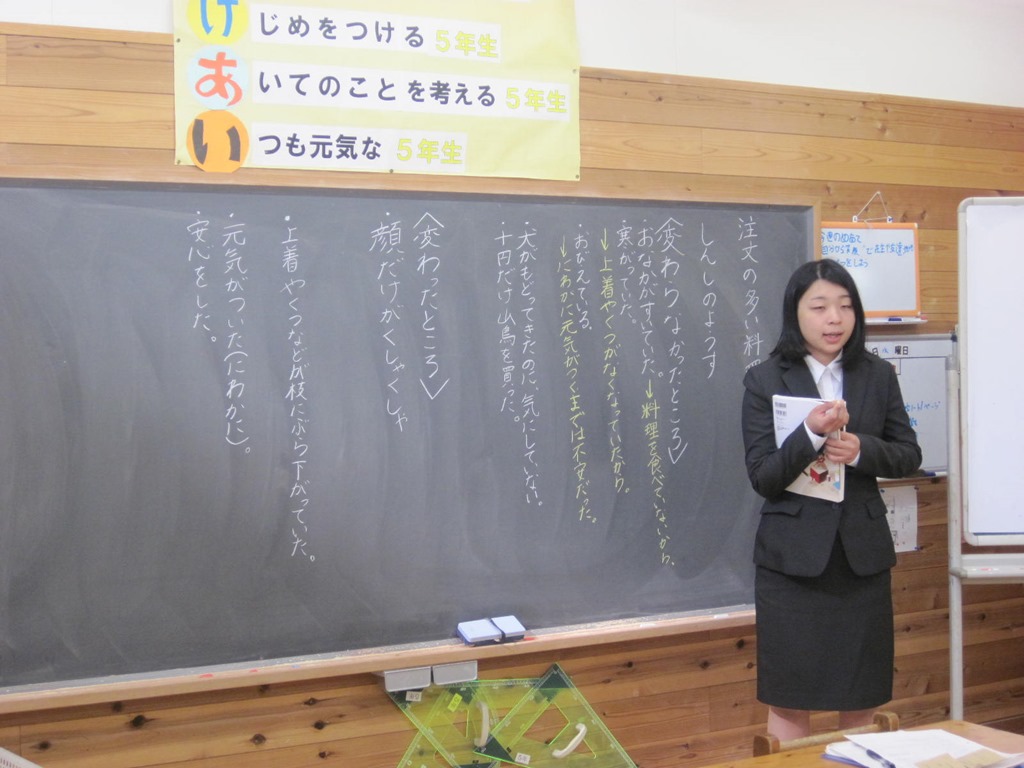 け
じめをつける 5年生
あ
いてのことを考える 5年生
い
つも元気な 5年生
注文の多い料理
しんしのようす
〈変わらなかったところ〉
・おなかがすいていた。→料理を食べていないから。
・寒がっていた。
→上着やくつがなくなっていたから。
・おびえている。
→にわかに元気がつくまでは不安だった。
・犬がもどってきたのに、気にしていない。
・十円だけ山鳥を買った。
〈変わったところ〉
顔だけがくしゃくしゃ
・上着やくつなどが枝にぶら下がっていた。
・元気がついた(にわかに)。
・安心をした。
曜日